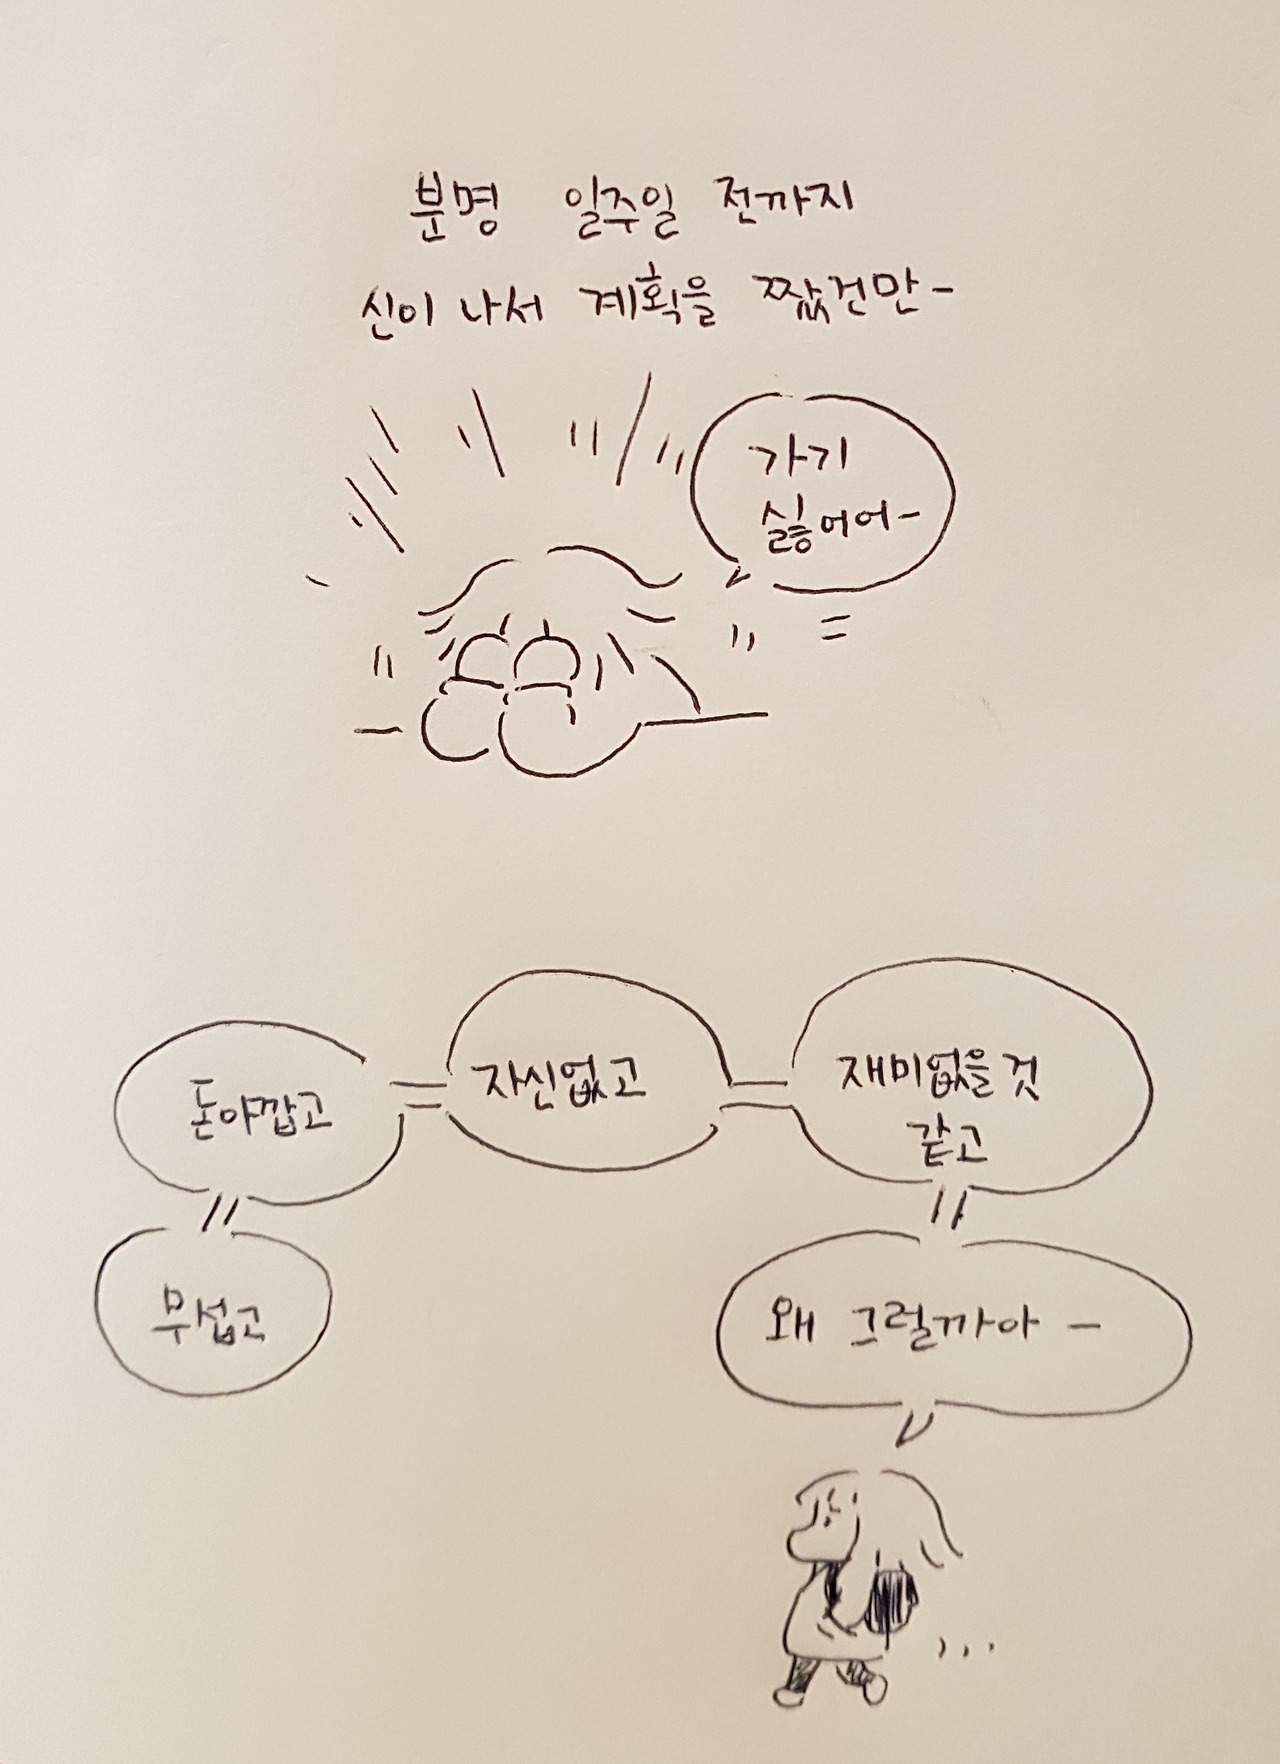 분명 일주일 전까지
신이 나서 계획을 짰건만-
가기
싫어어-
무섭고
돈아깝고
자신없고
재미없을 것
같고
왜 그럴까아 -
...